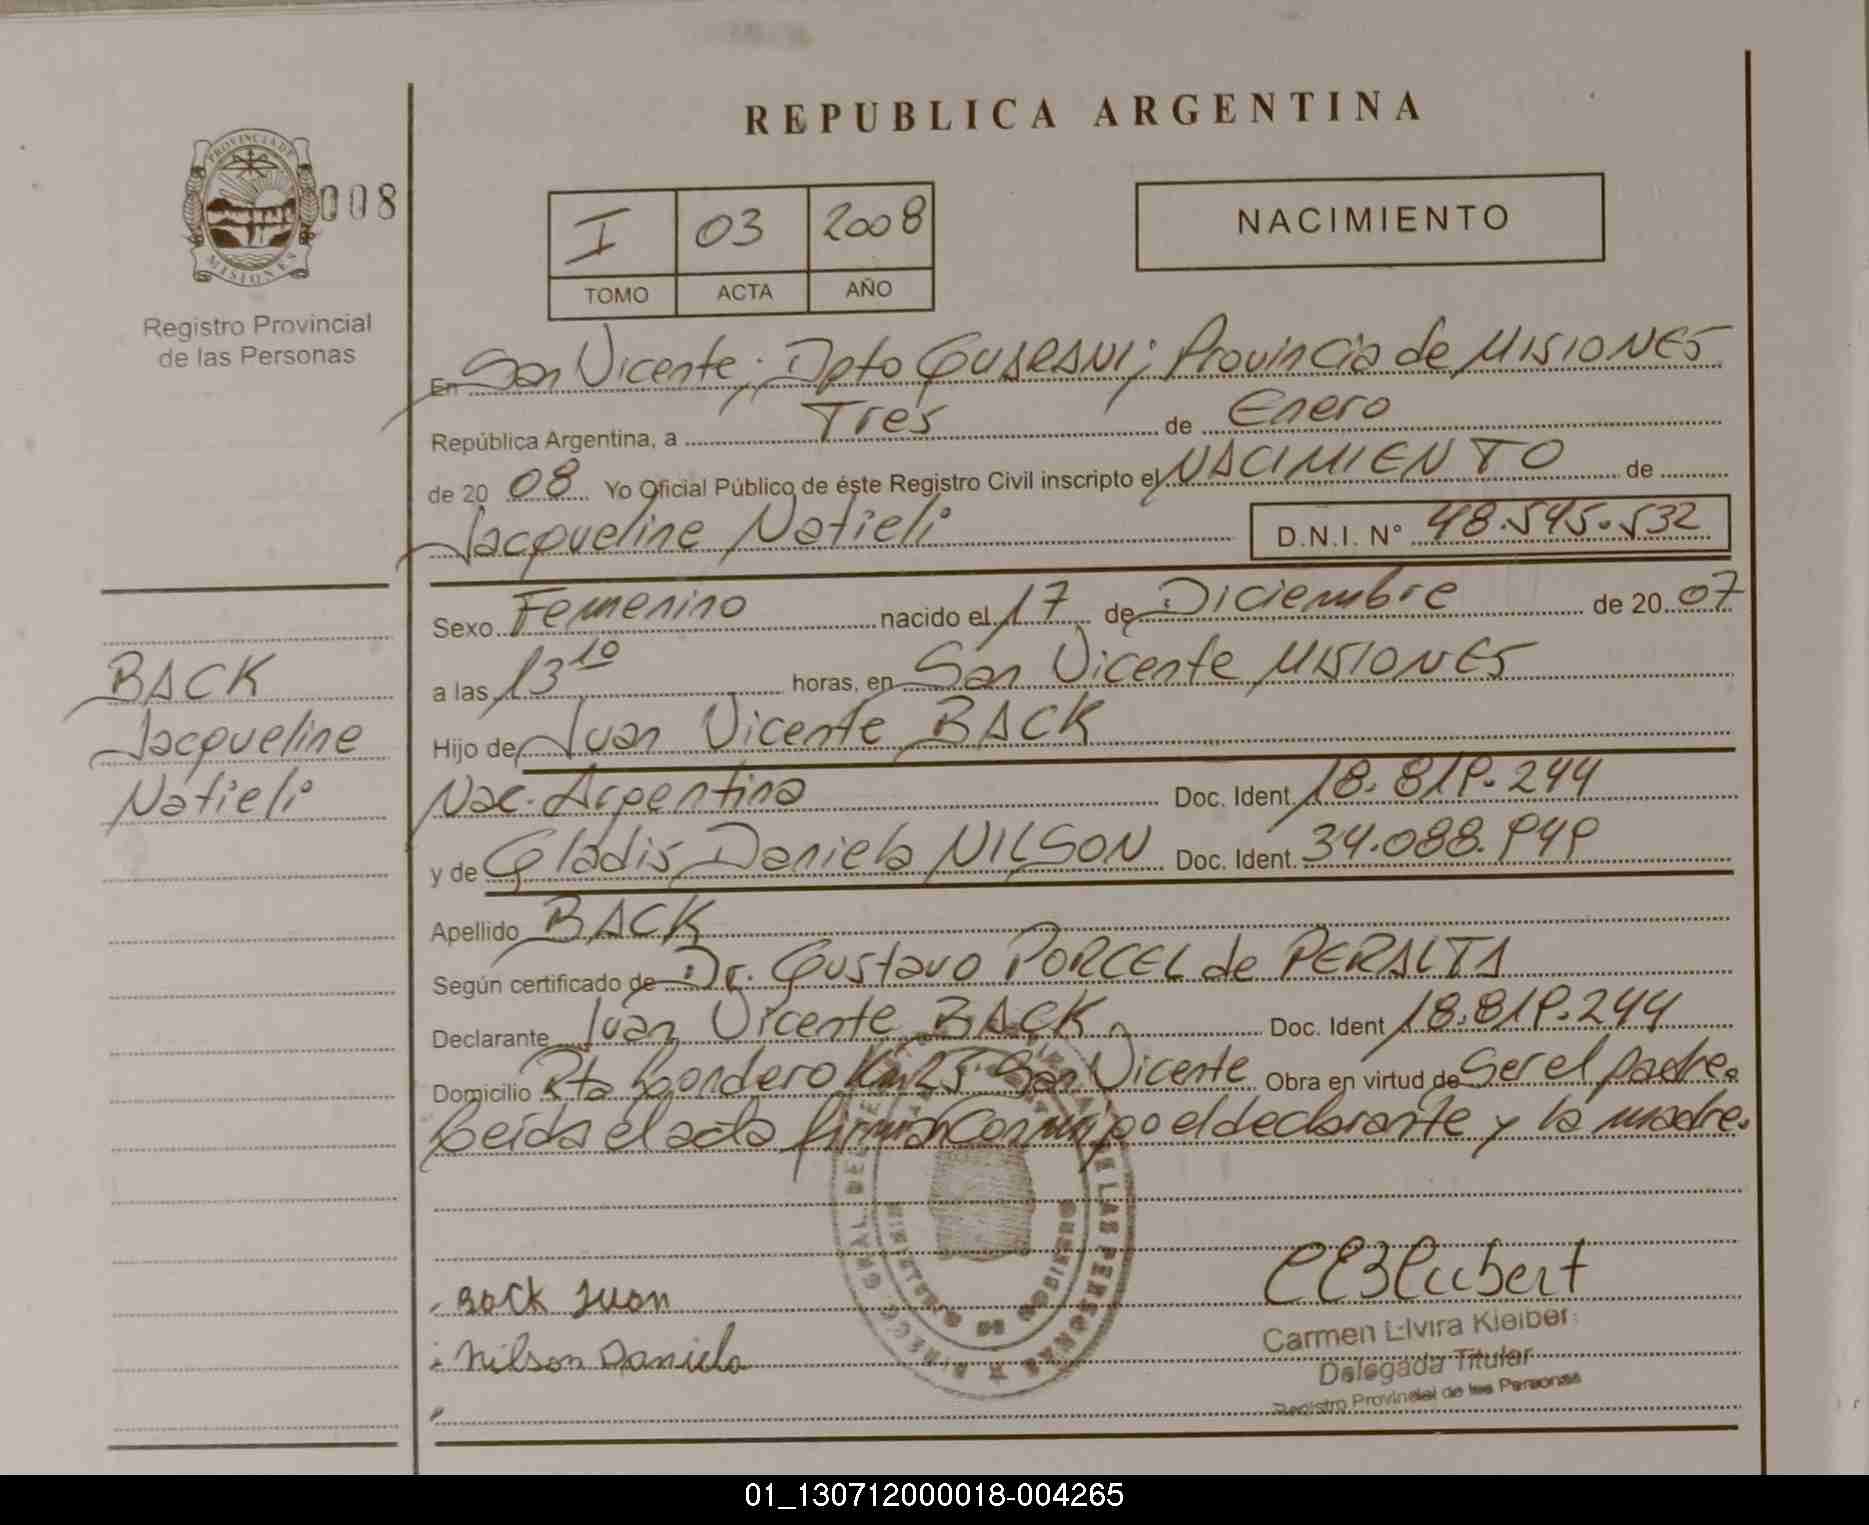 REPUBLICA ARGENTINA
PROVINCIA DE MISIONES
008
Registro Provincial
de las Personas
I 03 2008
TOMO ACTA AÑO
NACIMIENTO
En San Vicente; Dpto GUARANI; Provincia de MISIONES
República Argentina, a Tres de Enero
de 20 08 Yo Oficial Público de éste Registro Civil inscripto el NACIMIENTO de
Jacqueline Natieli D.N.I. N° 48.545.532
Sexo Femenino nacido el 17 de Diciembre de 20 07
a las 13 10 horas, en San Vicente MISIONES
Hijo de Juan Vicente BACK
Nac. Argentina Doc. Ident. 18.819.244
y de Gladis Daniela NILSON Doc. Ident. 34.088.949
Apellido BACK
Según certificado de Dr. Gustavo PORCEL de PERALTA
Declarante Juan Vicente BACK Doc. Ident 18.819.244
Domicilio Rta Km 25 San Vicente Obra en virtud de Ser el padre.
Leida el acta firman Conmigo el declarante y la madre.
BACK
Jacqueline
Natieli
Back Juan
Nilson Daniela
Carmen Elvira Kleiber
Delegada Titular
Registro Provincial de las Personas
DE LAS PERSONAS
MINISTERIO DE GOBIERNO
01_130712000018-004265